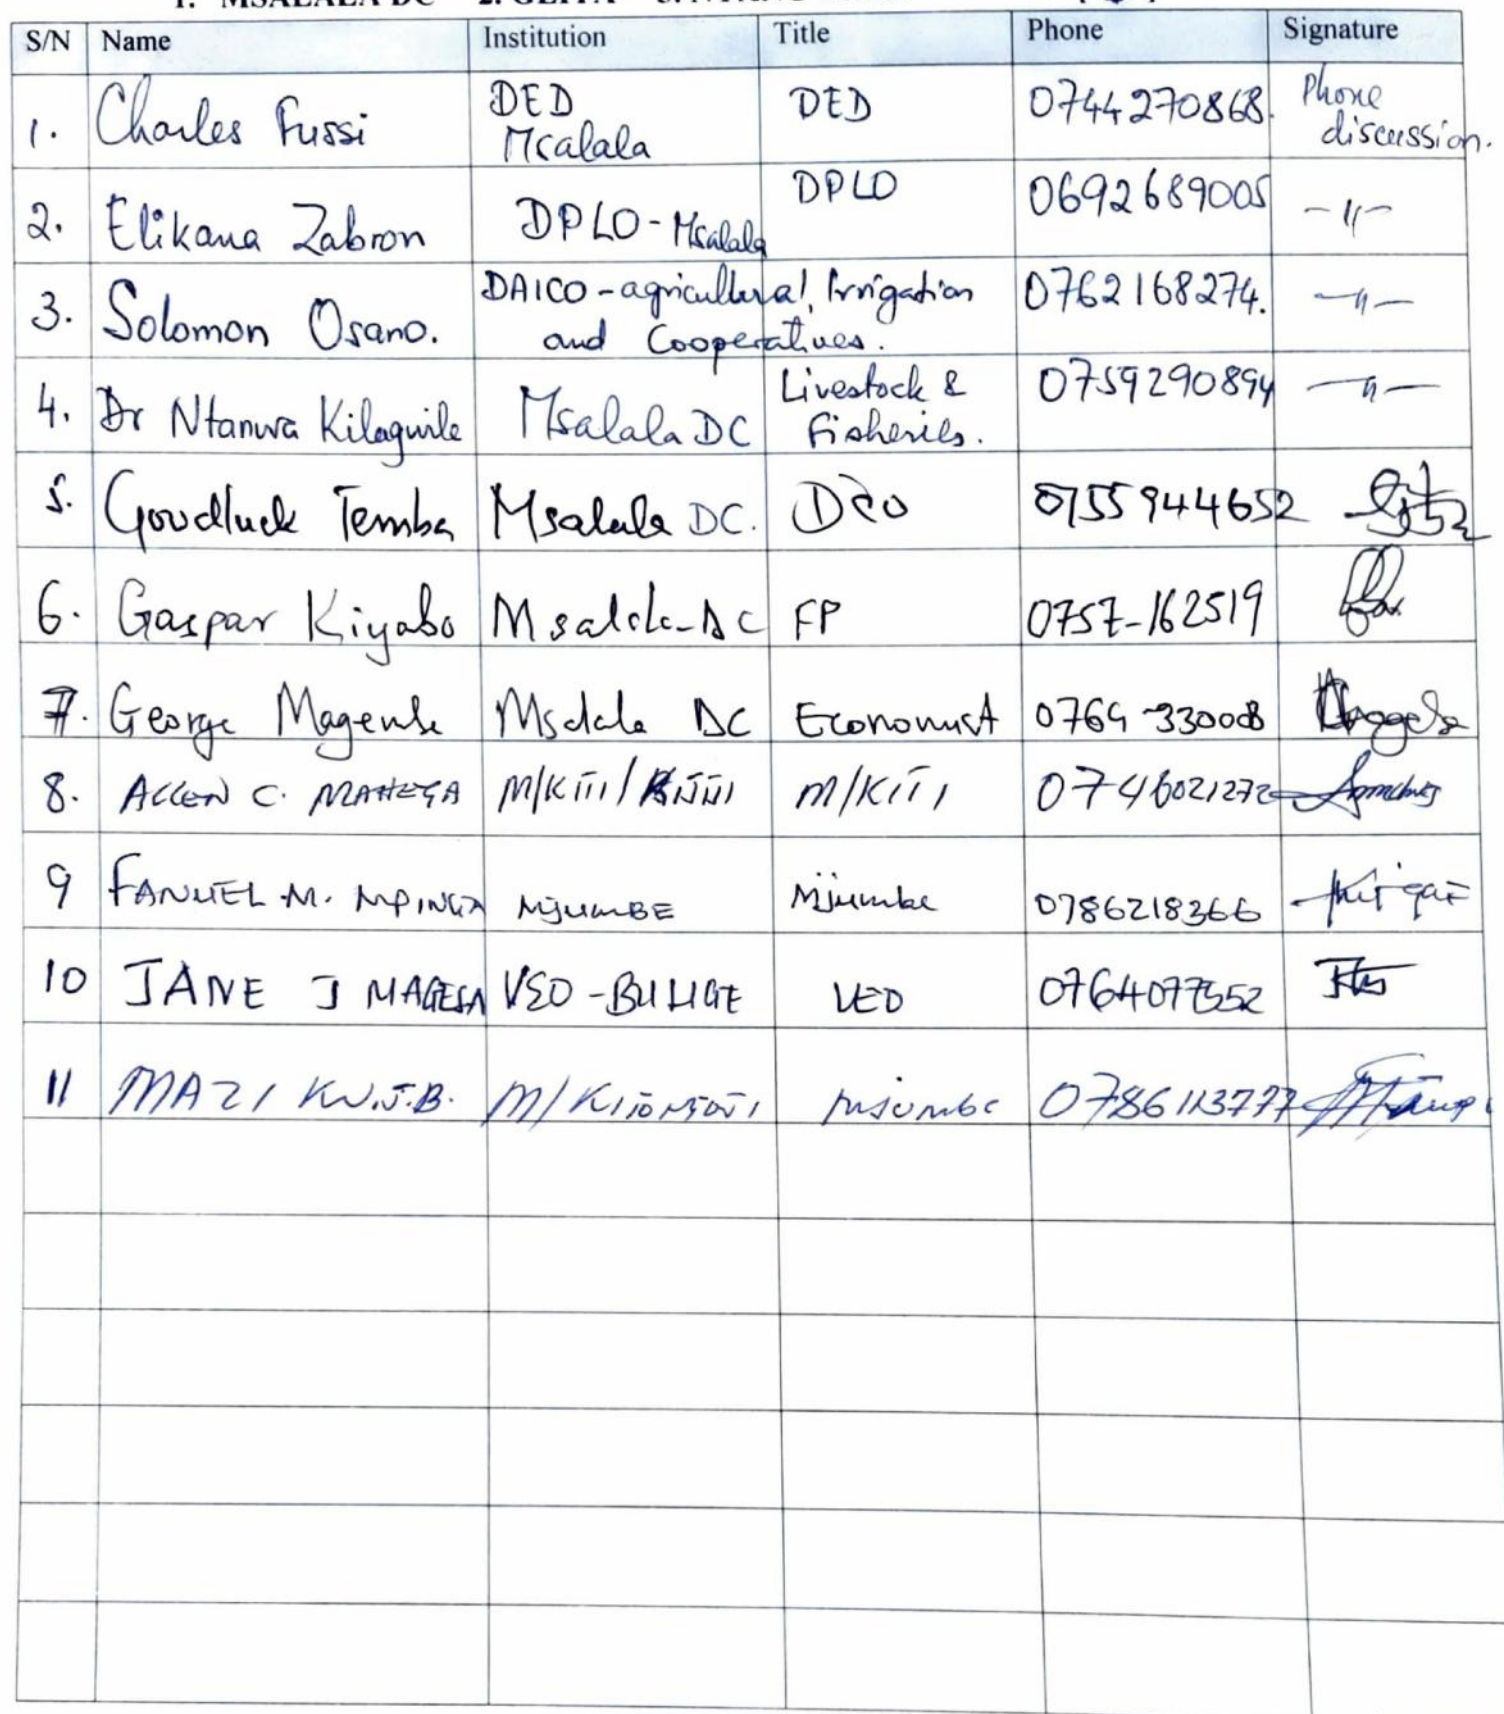 1. MSALALA DC 2. GEITA 3.
S/N Name Institution Title Phone Signature
1. Charles Fussi DED Msalala DED 0744270868. Phone discussion.
2. Elikana Zabron DPLO-Msalala DPLO 0692689005 -〃-
3. Solomon Osano. DAICO-agricultural, Irrigation and Cooperatives. 0762168274. -〃-
4. Dr Ntanwa Kilagwile Msalala DC Livestock & Fisheries. 0759290894 -〃-
5. Goodluck Temba Msalala DC. 0755944652
6. Gaspar Kiyabo Msalala-DC FP 0757-162519
7. George Magembe Msalala DC Economist
8. ALLEN C. MAHEGA M/KITI/ M/KITI 0746021272
9 FANUEL M. MPINGA MJUMBE Mjumbe 0786218366
10 JANE J MAGESA VEO-BULIGE VEO
11 MAZI KW.J.B. Mjumbe 0786113777